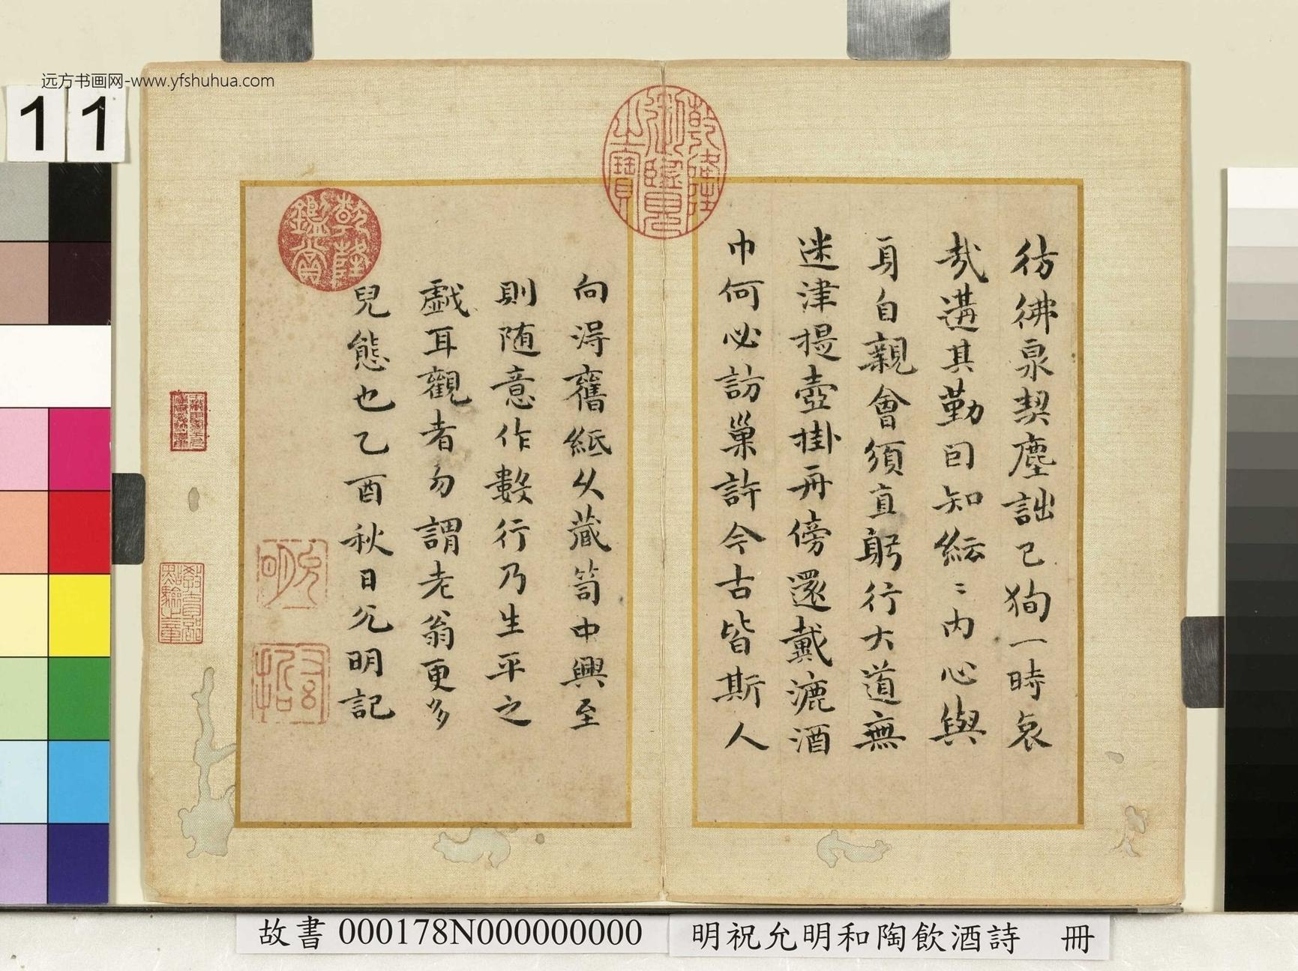 远方书画网-www.yfshuhua.com
11
乾隆御覽之寶
彷彿泉契塵詘已狥一時哀
哉遘其勤囙知紜〻内心與
身自親會須直躬行大道無
迷津提壺掛舟傍還戴漉酒
巾何必訪巢許今古皆斯人
乾隆鑑賞
向淂舊紙乆藏笥中興至
則随意作數行乃生平之
戯耳觀者勿謂老翁更多
兒態也乙酉秋日允明記
故書 000178N000000000
明祝允明和陶飲酒詩 冊